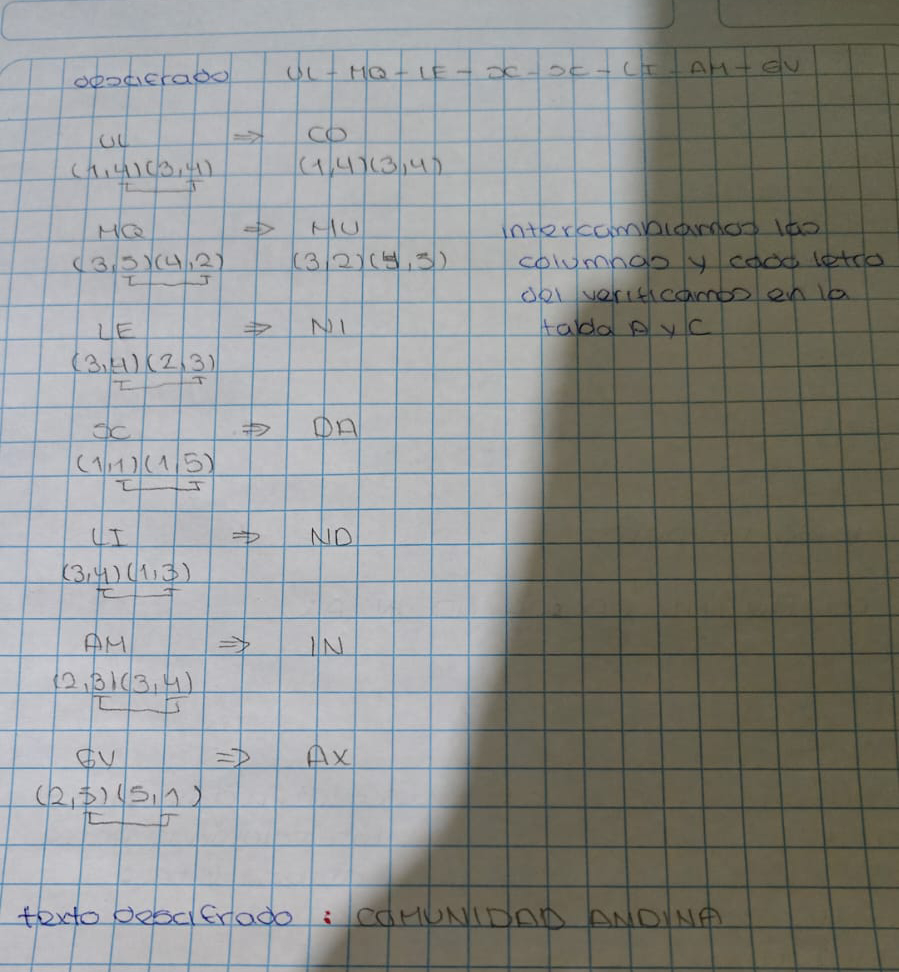 descifrado UL - MQ - LE - JC - JC - LI - AM - GV
UL ⇒ CO
(1,4)(3,4) (1,4)(3,4)
MQ ⇒ MU
(3,5)(4,2) (3,2)(4,5)
intercambiamos las
columnas y cada letra
del verificamos en la
tabla A y C
LE ⇒ NI
(3,4)(2,3)
JC ⇒ DA
(1,1)(1,5)
LI ⇒ ND
(3,4)(1,3)
AM ⇒ IN
(2,3)(3,4)
GV ⇒ AX
(2,5)(5,1)
texto descifrado : COMUNIDAD ANDINA